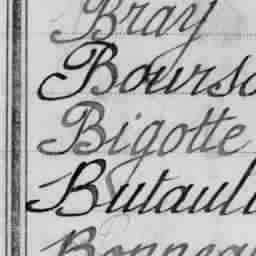 Bray
Bourso
Bigotte
Butaul
Bonnea